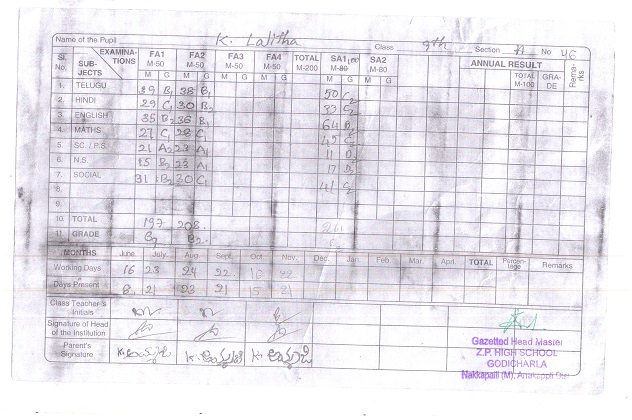 Name of the Pupil K. Lalitha Class 9th Section A No 46
Sl. No. SUBJECTS EXAMINATIONS FA1 M-50 FA2 M-50 FA3 M-50 FA4 M-50 TOTAL M-200 SA1 M-80 100 SA2 M-80 ANNUAL RESULT
M G M G M G M G M G M G TOTAL M-100 GRADE Remarks
1. TELUGU 39 B1 38 B1 50 C2
2. HINDI 29 C1 30 B2 33 C2
3. ENGLISH 35 B2 36 B1 64
4. MATHS 27 C1 28 C1 45 C2
5. SC. / P.S 21 A2 23 A1 11 D
6. N.S. 15 B2 23 A1 17
7. SOCIAL 31 B2 30 C1 41 C2
8.
9.
10. TOTAL 197 208
11. GRADE B2 B2
MONTHS June July Aug. Sept. Oct. Nov. Dec. Jan. Feb. Mar. April. TOTAL Percentage Remarks
Working Days 16 23 24 22 16 22
Days Present 8 21 23 21 15 21
Class Teacher's Initials
Signature of Head of the Institution
Parent's Signature
Gazetted Head Master
Z.P. HIGH SCHOOL
GODICHARLA
Nakkapalli (M), Anakappli Dist